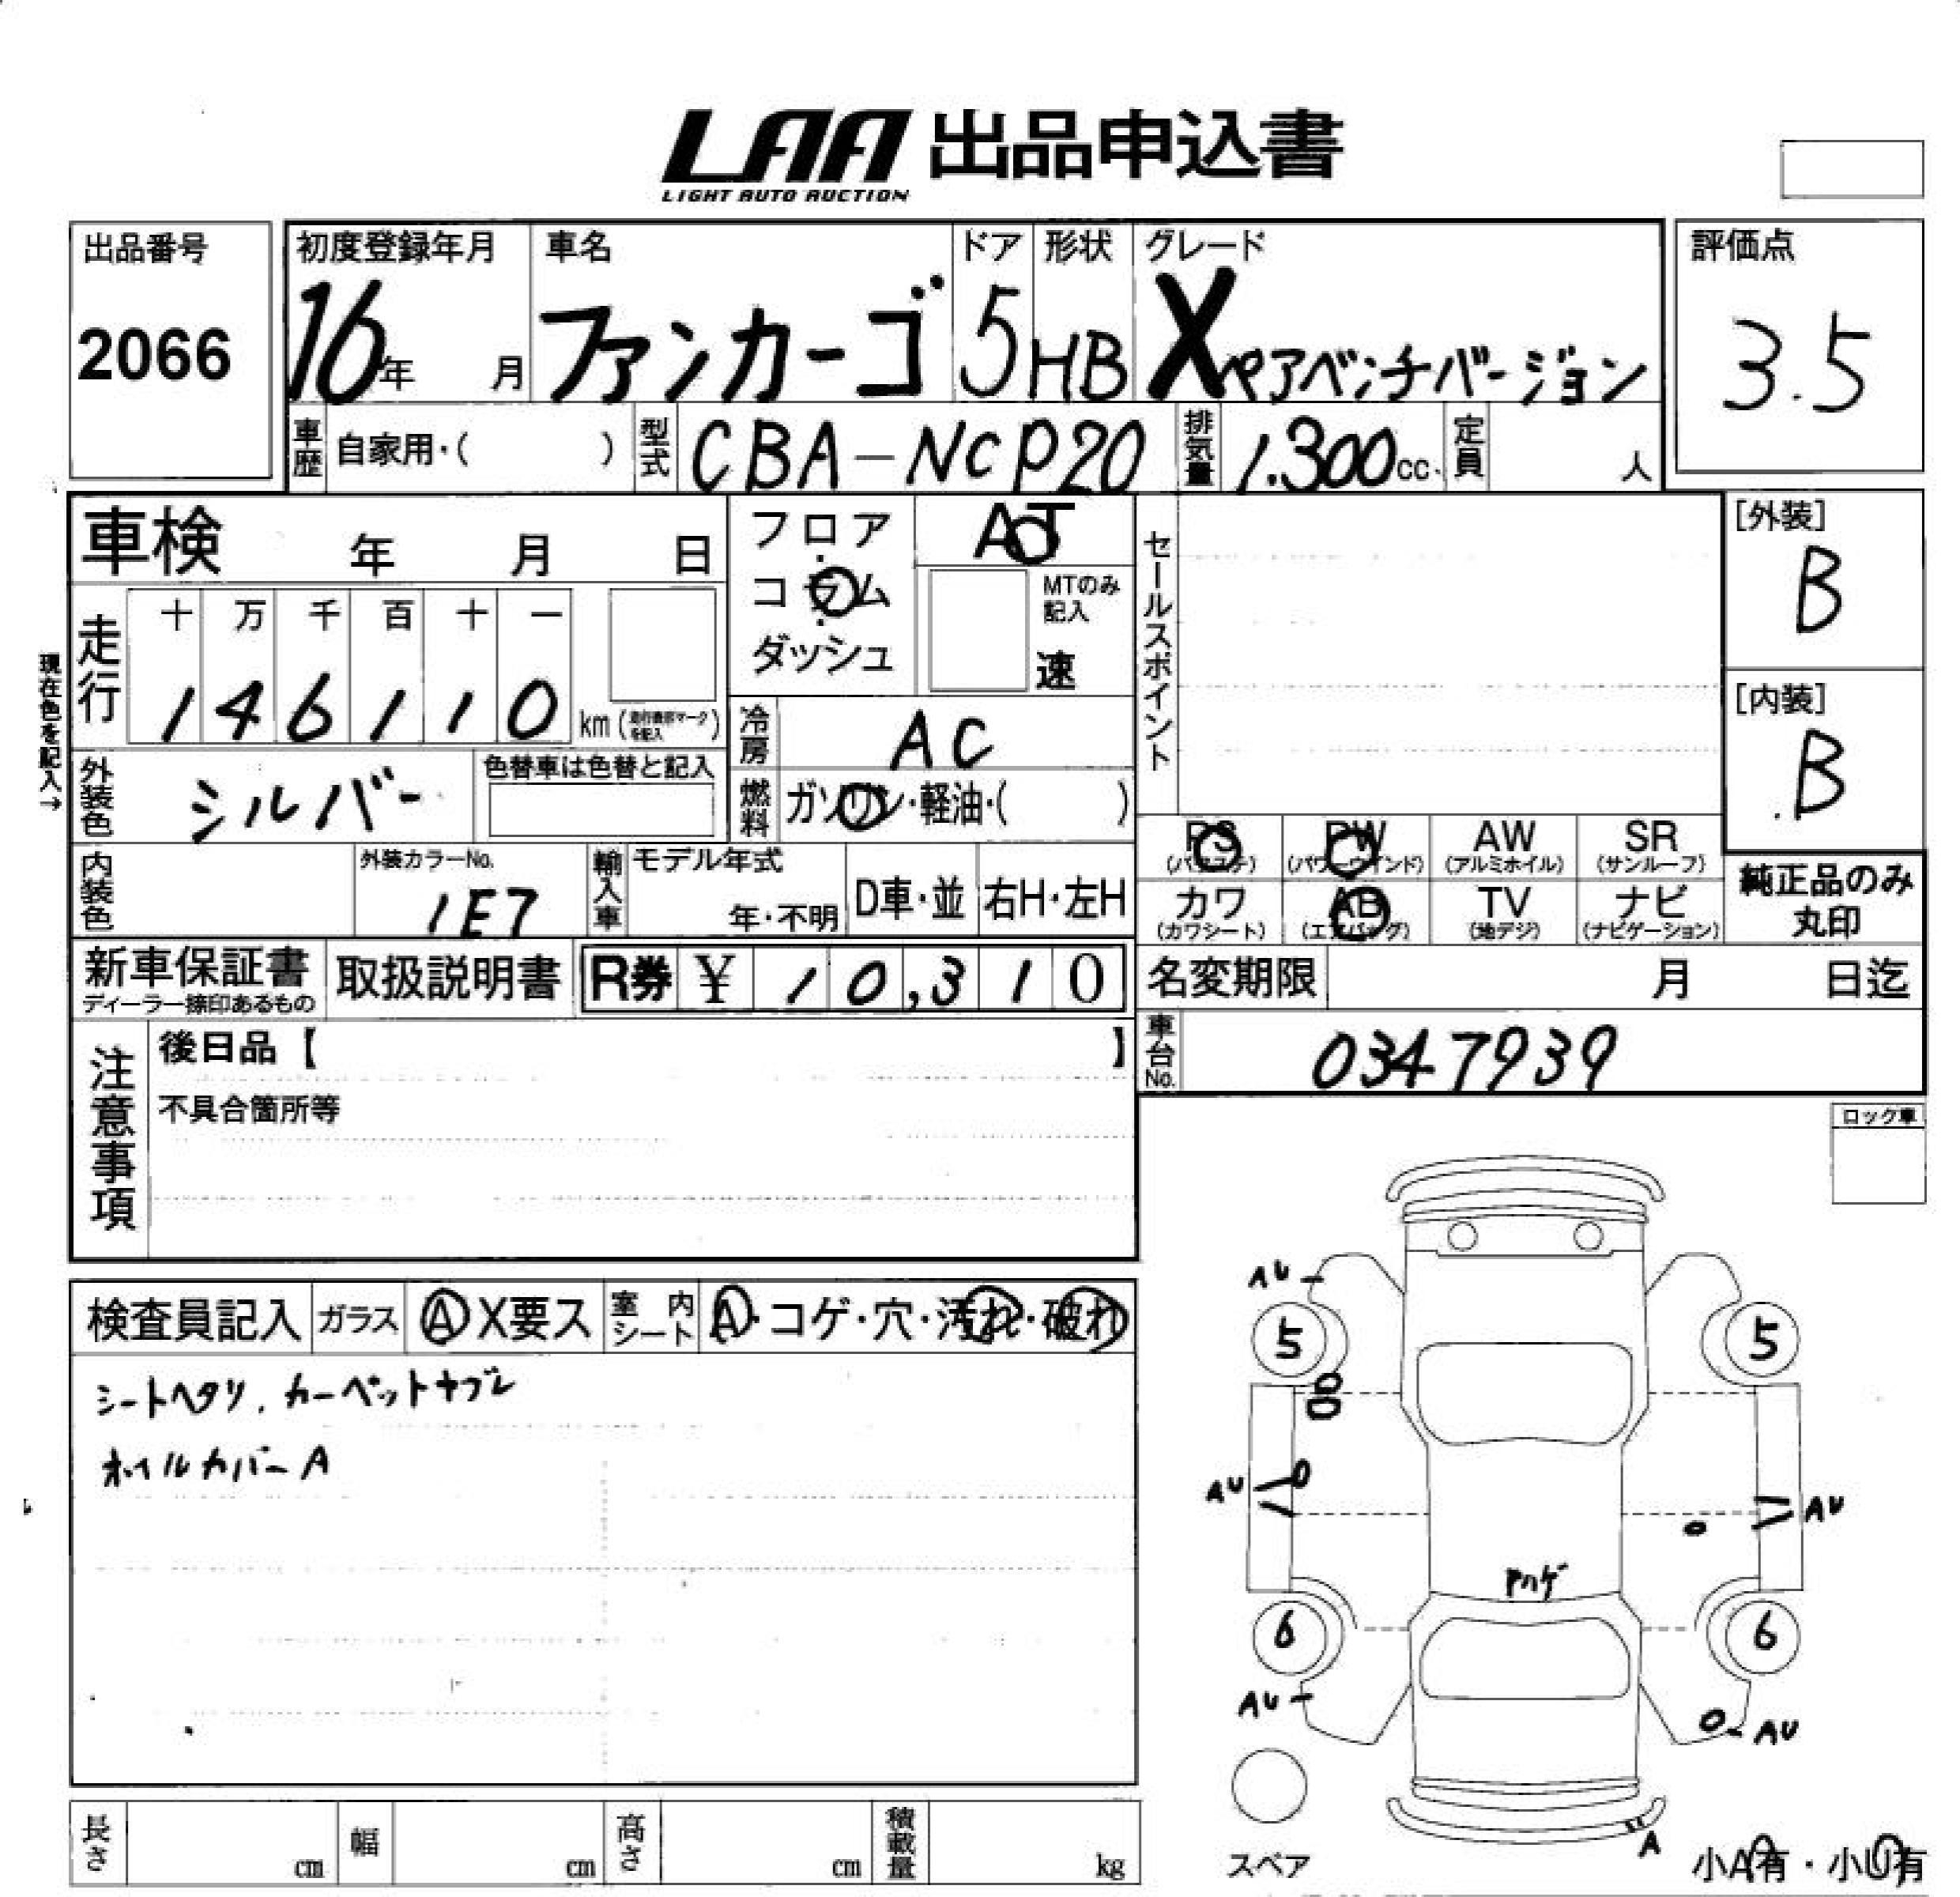 LAA 出品申込書
LIGHT AUTO AUCTION
出品番号
2066
初度登録年月
16年 月
車名
ファンカーゴ
ドア
5
形状
HB
グレード
Xペアベンチバージョン
評価点
3.5
車歴 自家用・( )
型式 CBA-NCP20
排気量 1.300cc
定員 人
車検 年 月 日
フロア・コラム・ダッシュ
AT
MTのみ記入
速
セールスポイント
[外装]
B
[内装]
B
現在色を記入→
走行
十 万 千 百 十 一
1 4 6 1 1 0 km
冷房 AC
外装色 シルバー
色替車は色替と記入
燃料 ガソリン・軽油・( )
内装色
外装カラーNo.
1E7
輸入車
モデル年式
年・不明
D車・並
右H・左H
PS (パワステ)
PW (パワーウインド)
AW (アルミホイル)
SR (サンルーフ)
カワ (カワシート)
AB (エアバッグ)
TV (地デジ)
ナビ (ナビゲーション)
純正品のみ
丸印
新車保証書
ディーラー捺印あるもの
取扱説明書
R券 ¥ 10,310
名変期限 月 日迄
車台No. 0347939
注意事項
後日品【 】
不具合箇所等
ロック車
検査員記入 ガラス A X要ス 室内シート A・コゲ・穴・汚れ・破れ
シートヘタリ、カーペットヤブレ
ホイルカバーA
AU
5
5
AU
AU
アカゲ
6
6
AU
AU
A
スペア
小A有・小U有
長さ cm 幅 cm 高さ cm 積載量 kg